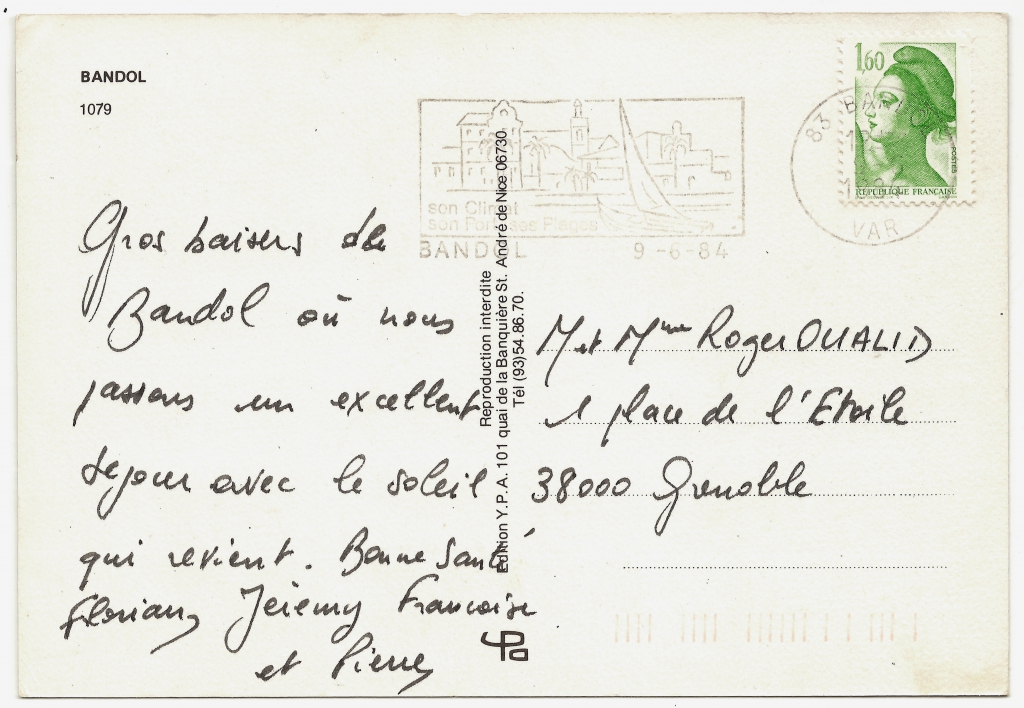 BANDOL
1079
1,60
POSTES
REPUBLIQUE FRANÇAISE
83 BANDOL
VAR
son Climat
son Port ses Plages
BANDOL 9-6-84
Gros baisers de
Bandol où nous
passons un excellent
séjour avec le soleil
qui revient. Bonne Santé
Florian, Jérémy Francoise
et Pierre
Reproduction interdite
Edition Y.P.A. 101 quai de la Banquière St. André de Nice 06730.
Tél (93)54.86.70.
M et Mme Roger OUALID
1 place de l'Etoile
38000 Grenoble